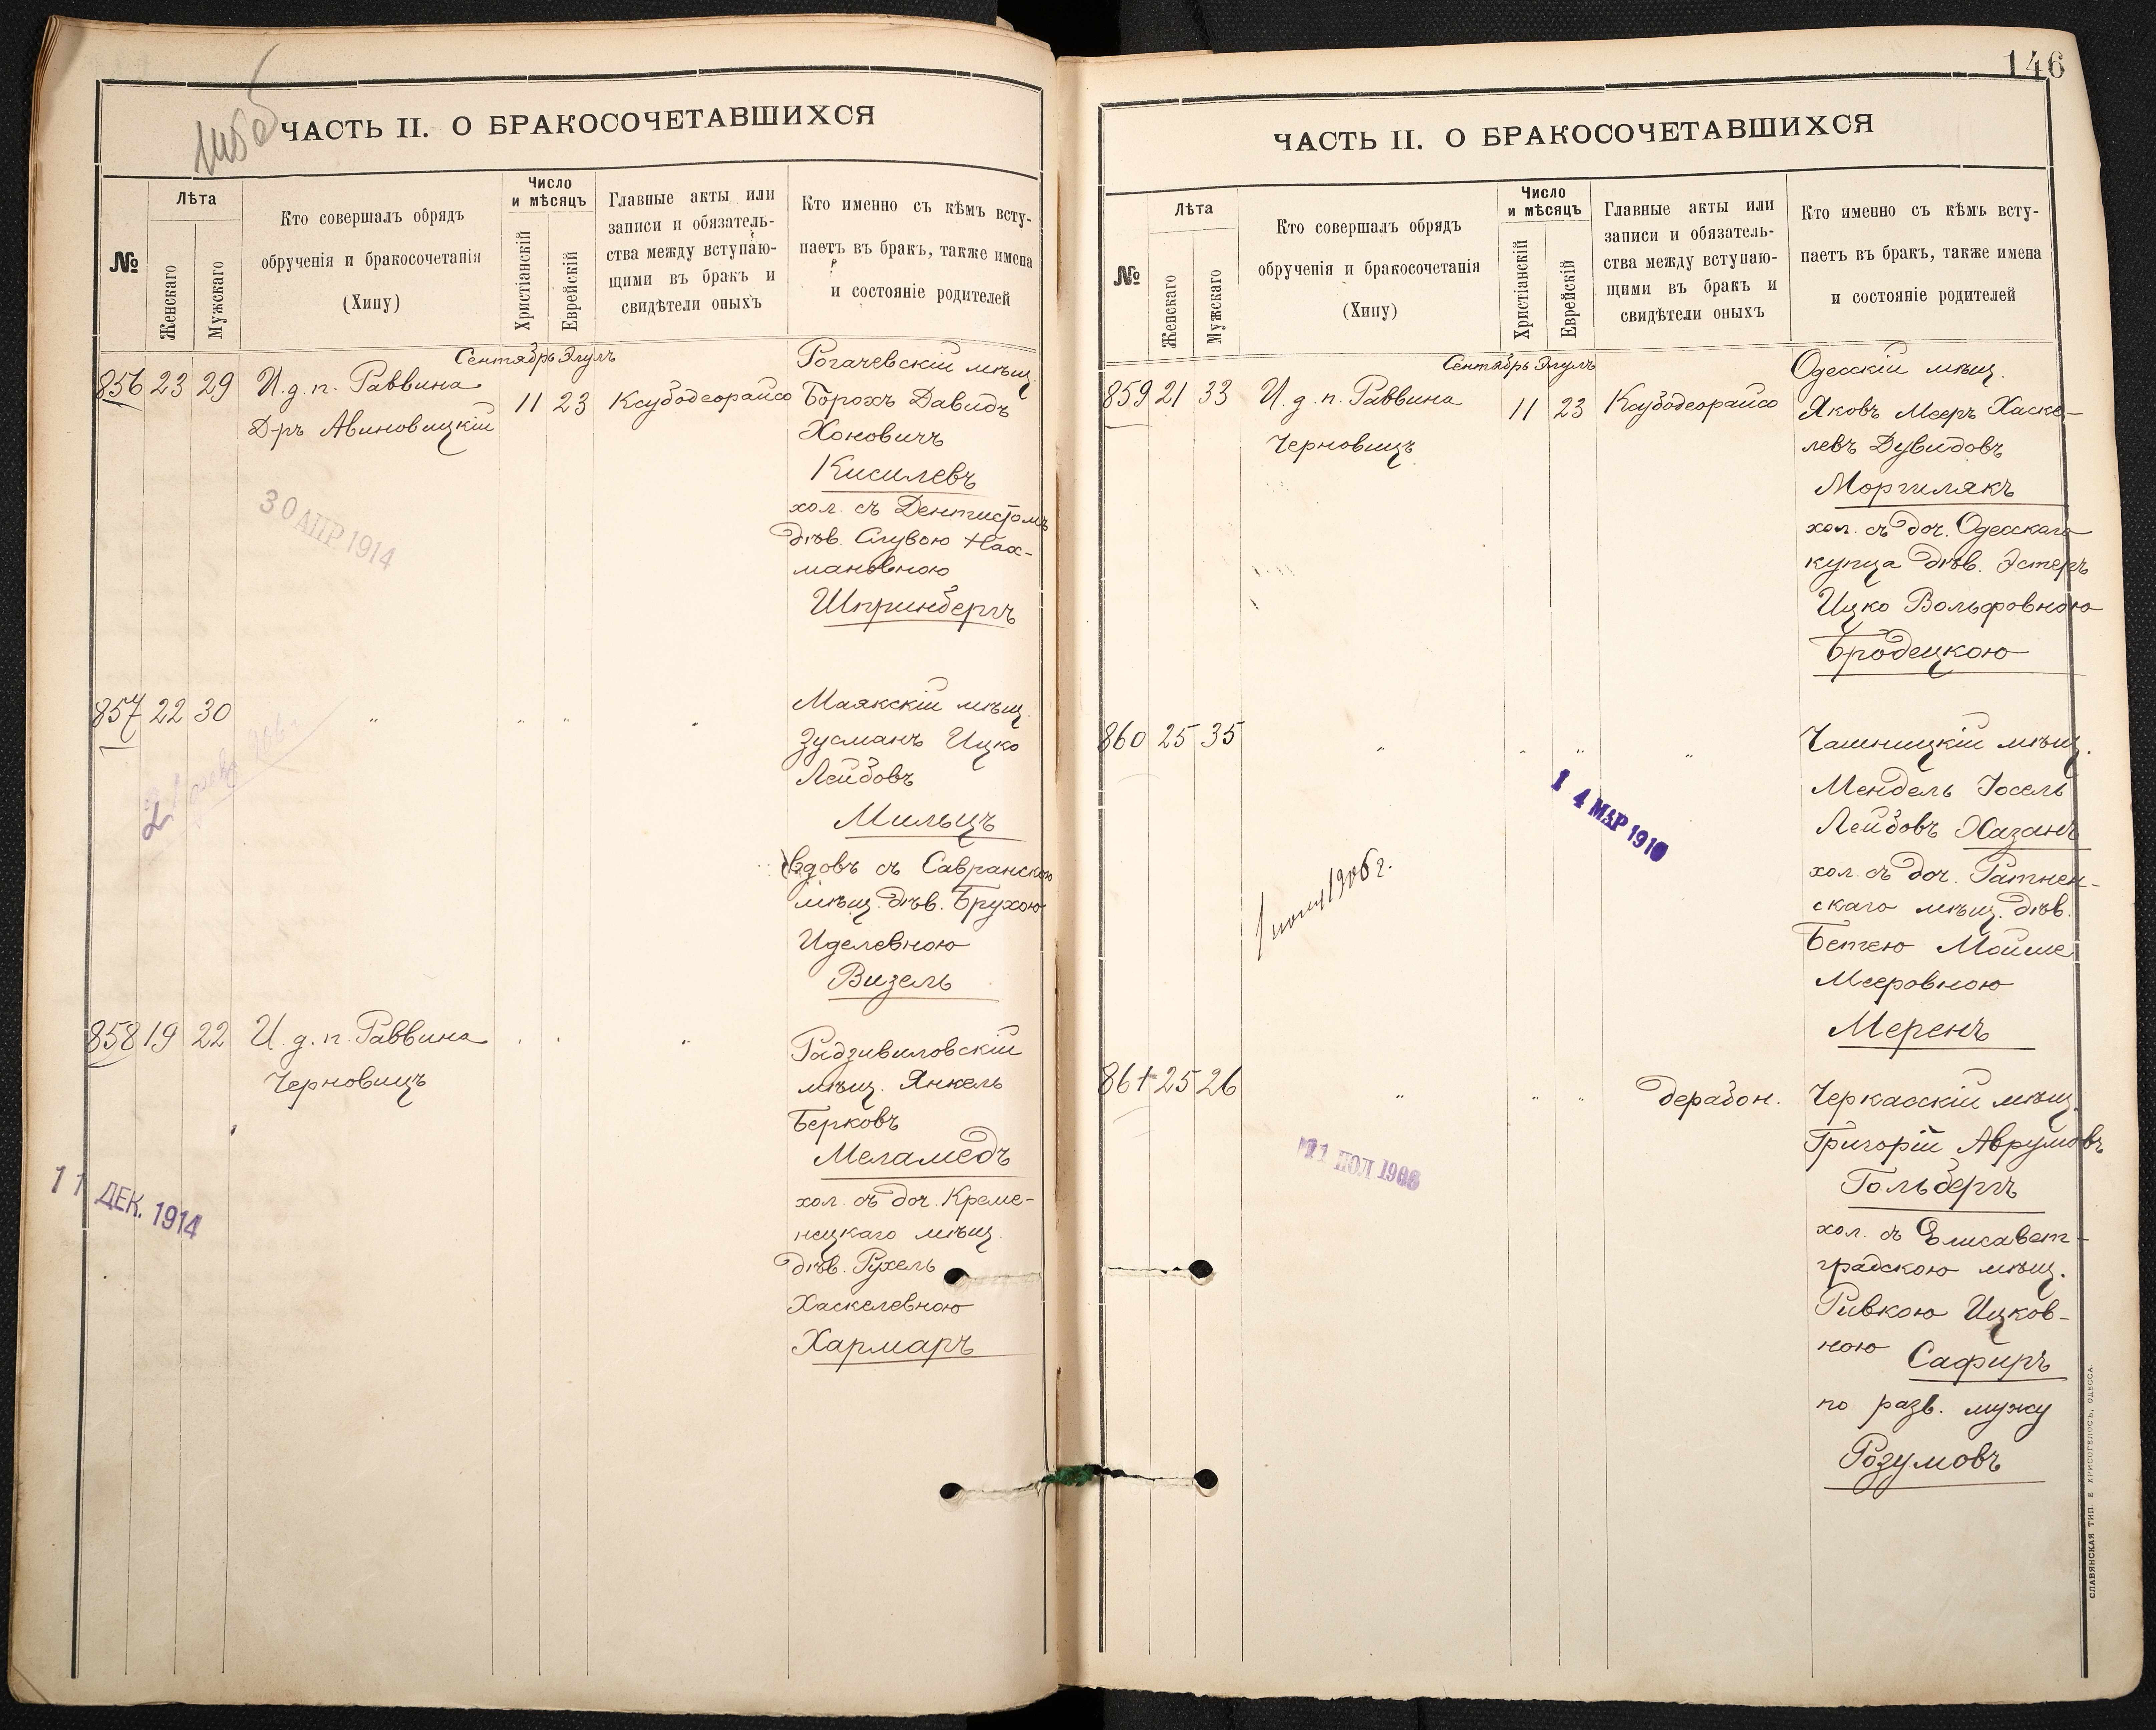 ЧАСТЬ II. О БРАКОСОЧЕТАВШИХСЯ
№
Лѣта
Женскаго
Мужскаго
Кто совершалъ обрядъ
обрученія и бракосочетанія
(Хипу)
Число
и мѣсяцъ
Христіанскій
Еврейскій
Главные акты или
записи и обязатель-
ства между вступаю-
щими въ бракъ и
свидѣтели оныхъ
Кто именно съ кѣмъ всту-
паетъ въ бракъ, также имена
и состояніе родителей
Сентябрь Элулъ
856 23 29 И. д. п. Раввина
Д-ръ Авиновицкій
11 23 Ксубодеорайсо
Рогачевскій мѣщ.
Борохъ Давидъ
Хоновичъ
Кисилевъ
хол. съ Дентистомъ
дѣв. Слувою Нах-
мановною
Шпринбергъ
30 АПР 1914
857 22 30 " " " "
Маякскій мѣщ.
Зусманъ Ицко
Лейбовъ
Мильцъ
вдовъ съ Савранскою
мѣщ. дѣв. Брухою
Иделевною
Визель
858 19 22 И. д. п. Раввина
Черновицъ
" " "
Радзивиловскій
мѣщ. Янкель
Берковъ
Меламедъ
хол. съ доч. Креме-
нецкаго мѣщ.
дѣв. Рухель
Хаскелевною
Хармаръ
11 ДЕК. 1914
146
ЧАСТЬ II. О БРАКОСОЧЕТАВШИХСЯ
№
Лѣта
Женскаго
Мужскаго
Кто совершалъ обрядъ
обрученія и бракосочетанія
(Хипу)
Число
и мѣсяцъ
Христіанскій
Еврейскій
Главные акты или
записи и обязатель-
ства между вступаю-
щими въ бракъ и
свидѣтели оныхъ
Кто именно съ кѣмъ всту-
паетъ въ бракъ, также имена
и состояніе родителей
Сентябрь Элулъ
859 21 33 И. д. п. Раввина
Черновицъ
11 23 Ксубодеорайсо
Одесскій мѣщ.
Яковъ Мееръ Хаске-
левъ Дувидовъ
Моргилякъ
хол. съ доч. Одесскаго
купца дѣв. Эстеръ
Ицко Вольфовною
Бродецкою
860 25 35 " " " "
Чашницкій мѣщ.
Мендель Іосель
Лейбовъ Хазанъ
хол. съ доч. Ратнен-
скаго мѣщ. дѣв.
Бетею Мойше
Мееровною
Меренъ
14 МАР 1910
1906 г.
861 25 26 " " " дерабон.
Черкасскій мѣщ.
Григорій Аврумовъ
Гольбергъ
хол. съ Елисавет-
градскою мѣщ.
Ривкою Ицков-
ною Сафиръ
по разв. мужу
Розумовъ
СЛАВЯНСКАЯ ТИП. Е ХРИСОГЕЛОСЪ, ОДЕССА.